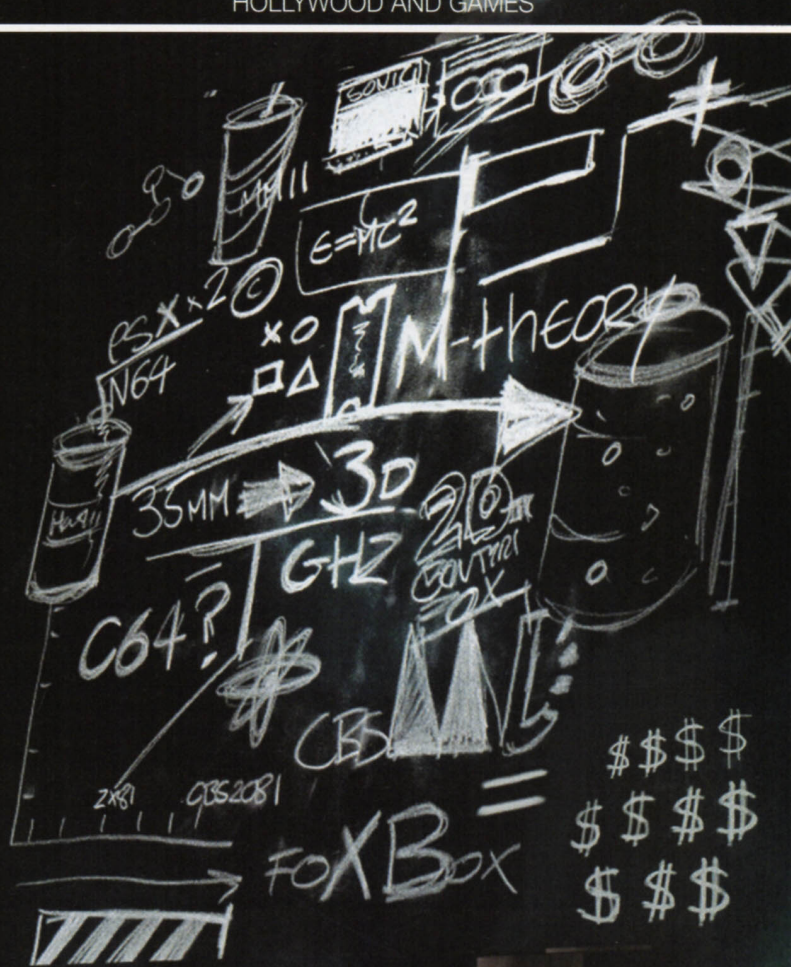 HOLLYWOOD AND GAMES
SONIC
E=MC²
PSX x2 ©
N64
M-thEORY
35MM 3D
GHZ
20
FOX
C64?
CBS
ZX81
=
$$$$
$$$$
$$$
FOXBOX